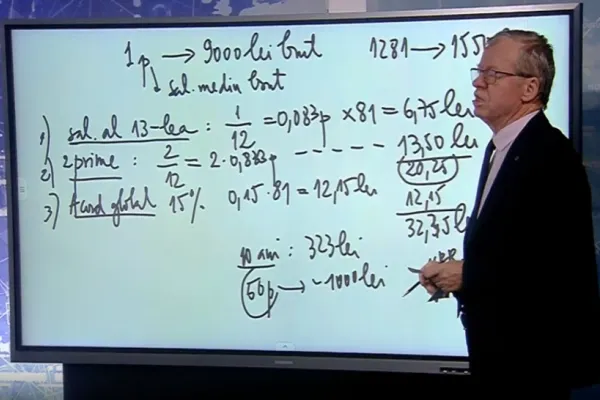 1p → 9000 lei brut 1281 → 155
↳ sal. mediu brut
1) sal. al 13-lea : 1/12 = 0,083p ×81 = 6,75 lei
2) 2 prime : 2/12 = 2·0,833p ----- 13,50 lei
20,25
3) Acord global 15% 0,15·81 = 12,15 lei 12,15
32,35 l
10 ani : 323 lei
56p → ~1000 lei